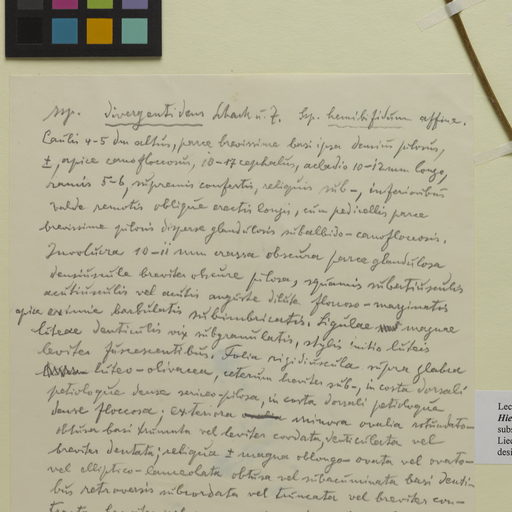 ssp. divergentidens Schack u. Z. Ssp. hemibifidum affine.
Caulis 4-5 dm altus, parce brevissime basi ipsa densius pilosus,
±, apice canofloccosus, 10-17 cephalus, acladio 10-12 mm longo,
ramis 5-6, supremis confertis, reliquis sub-, inferioribus
valde remotis oblique erectis longis, cum pedicellis parce
brevissime pilosis disperse glandulosis subalbido-canofloccosis.
Involucra 10-11 mm crassa obscura parce glandulosa
densiuscule breviter obscure pilosa, squamis subartiusculis
acutiusculis vel acutis anguste dilute flocoso-marginatis
apice eximie barbulatis subimbricatis. Ligulae magnae
luteae denticulis vix subgranulatis, stylis initio luteis
leviter fuscescentibus. Folia rigidiuscula supra glabra
luteo-olivacea, ceterum breviter sub-, in costa dorsali
petioloque dense sericeo-pilosa, in costa dorsali petioloque
dense floccosa; exteriora minora ovalia rotundato-
obtusa basi truncata vel leviter cordata, denticulata vel
breviter dentata; reliqua ± magna oblongo-ovata vel ovato-
vel elliptico-lanceolata obtusa vel subacuminata basi denti-
bus retroversis subcordata vel truncata vel breviter con-
Lec
Hie
subs
Lied
desi